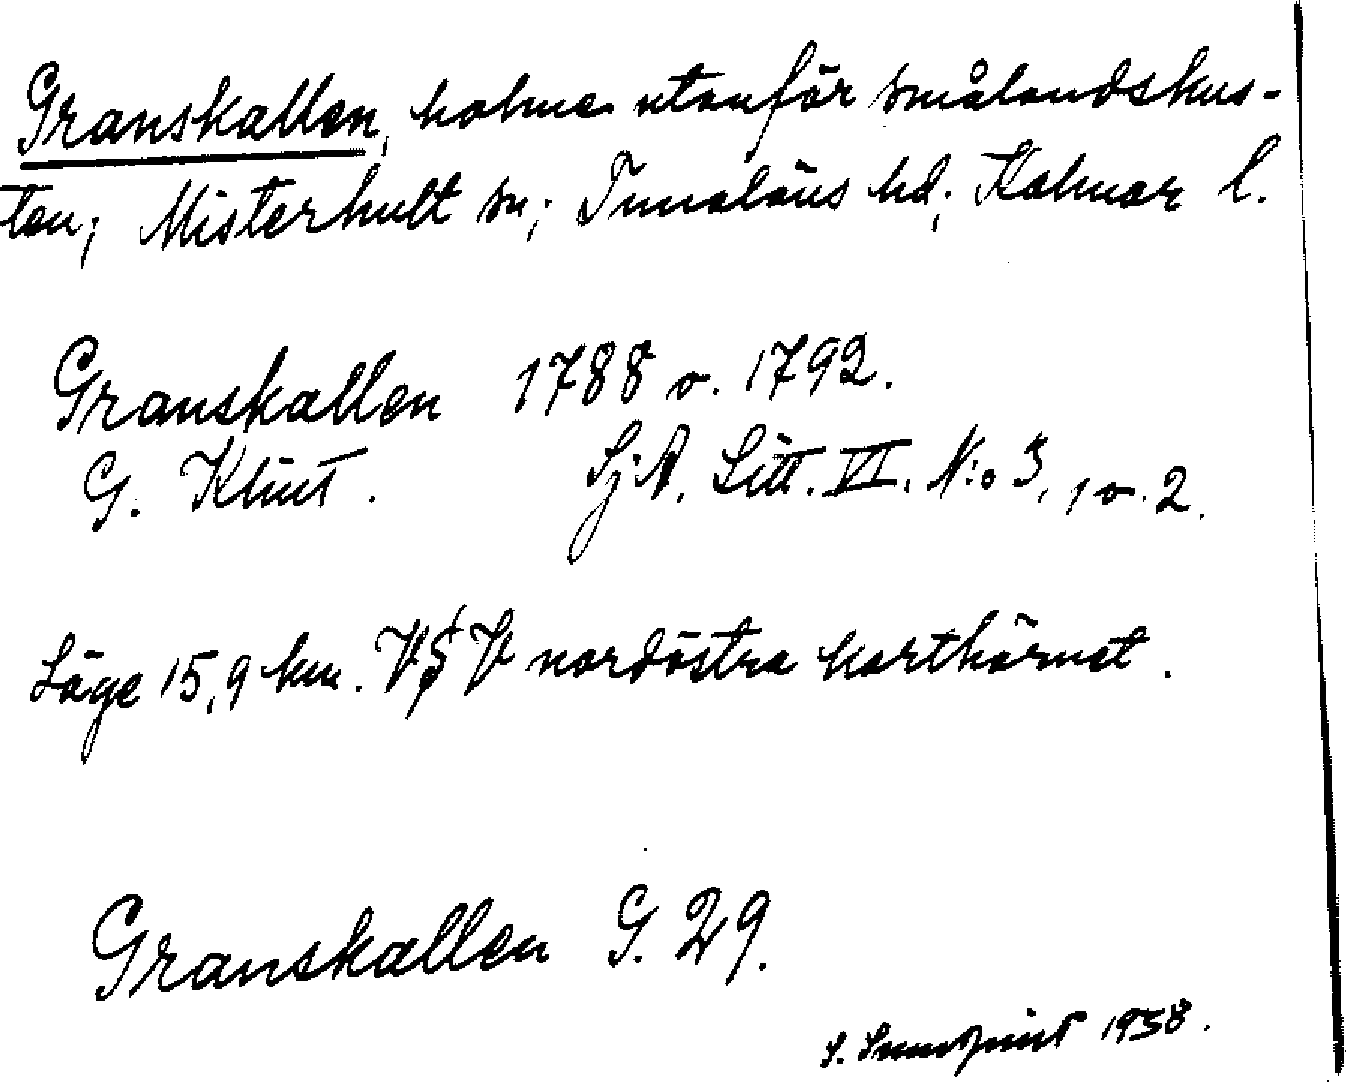 Granskallen, holme utanför smålandskus-
ten; Misterhult sn; Tunaläns hd; Kalmar l.
Granskallen 1788 o. 1792.
G. Klint. SjA. Litt. VI. N:o 3, 1 o. 2.
Läge 15,9 km. VSV nordöstra karthörnet.
Granskallen G. 29.
S. 1938.